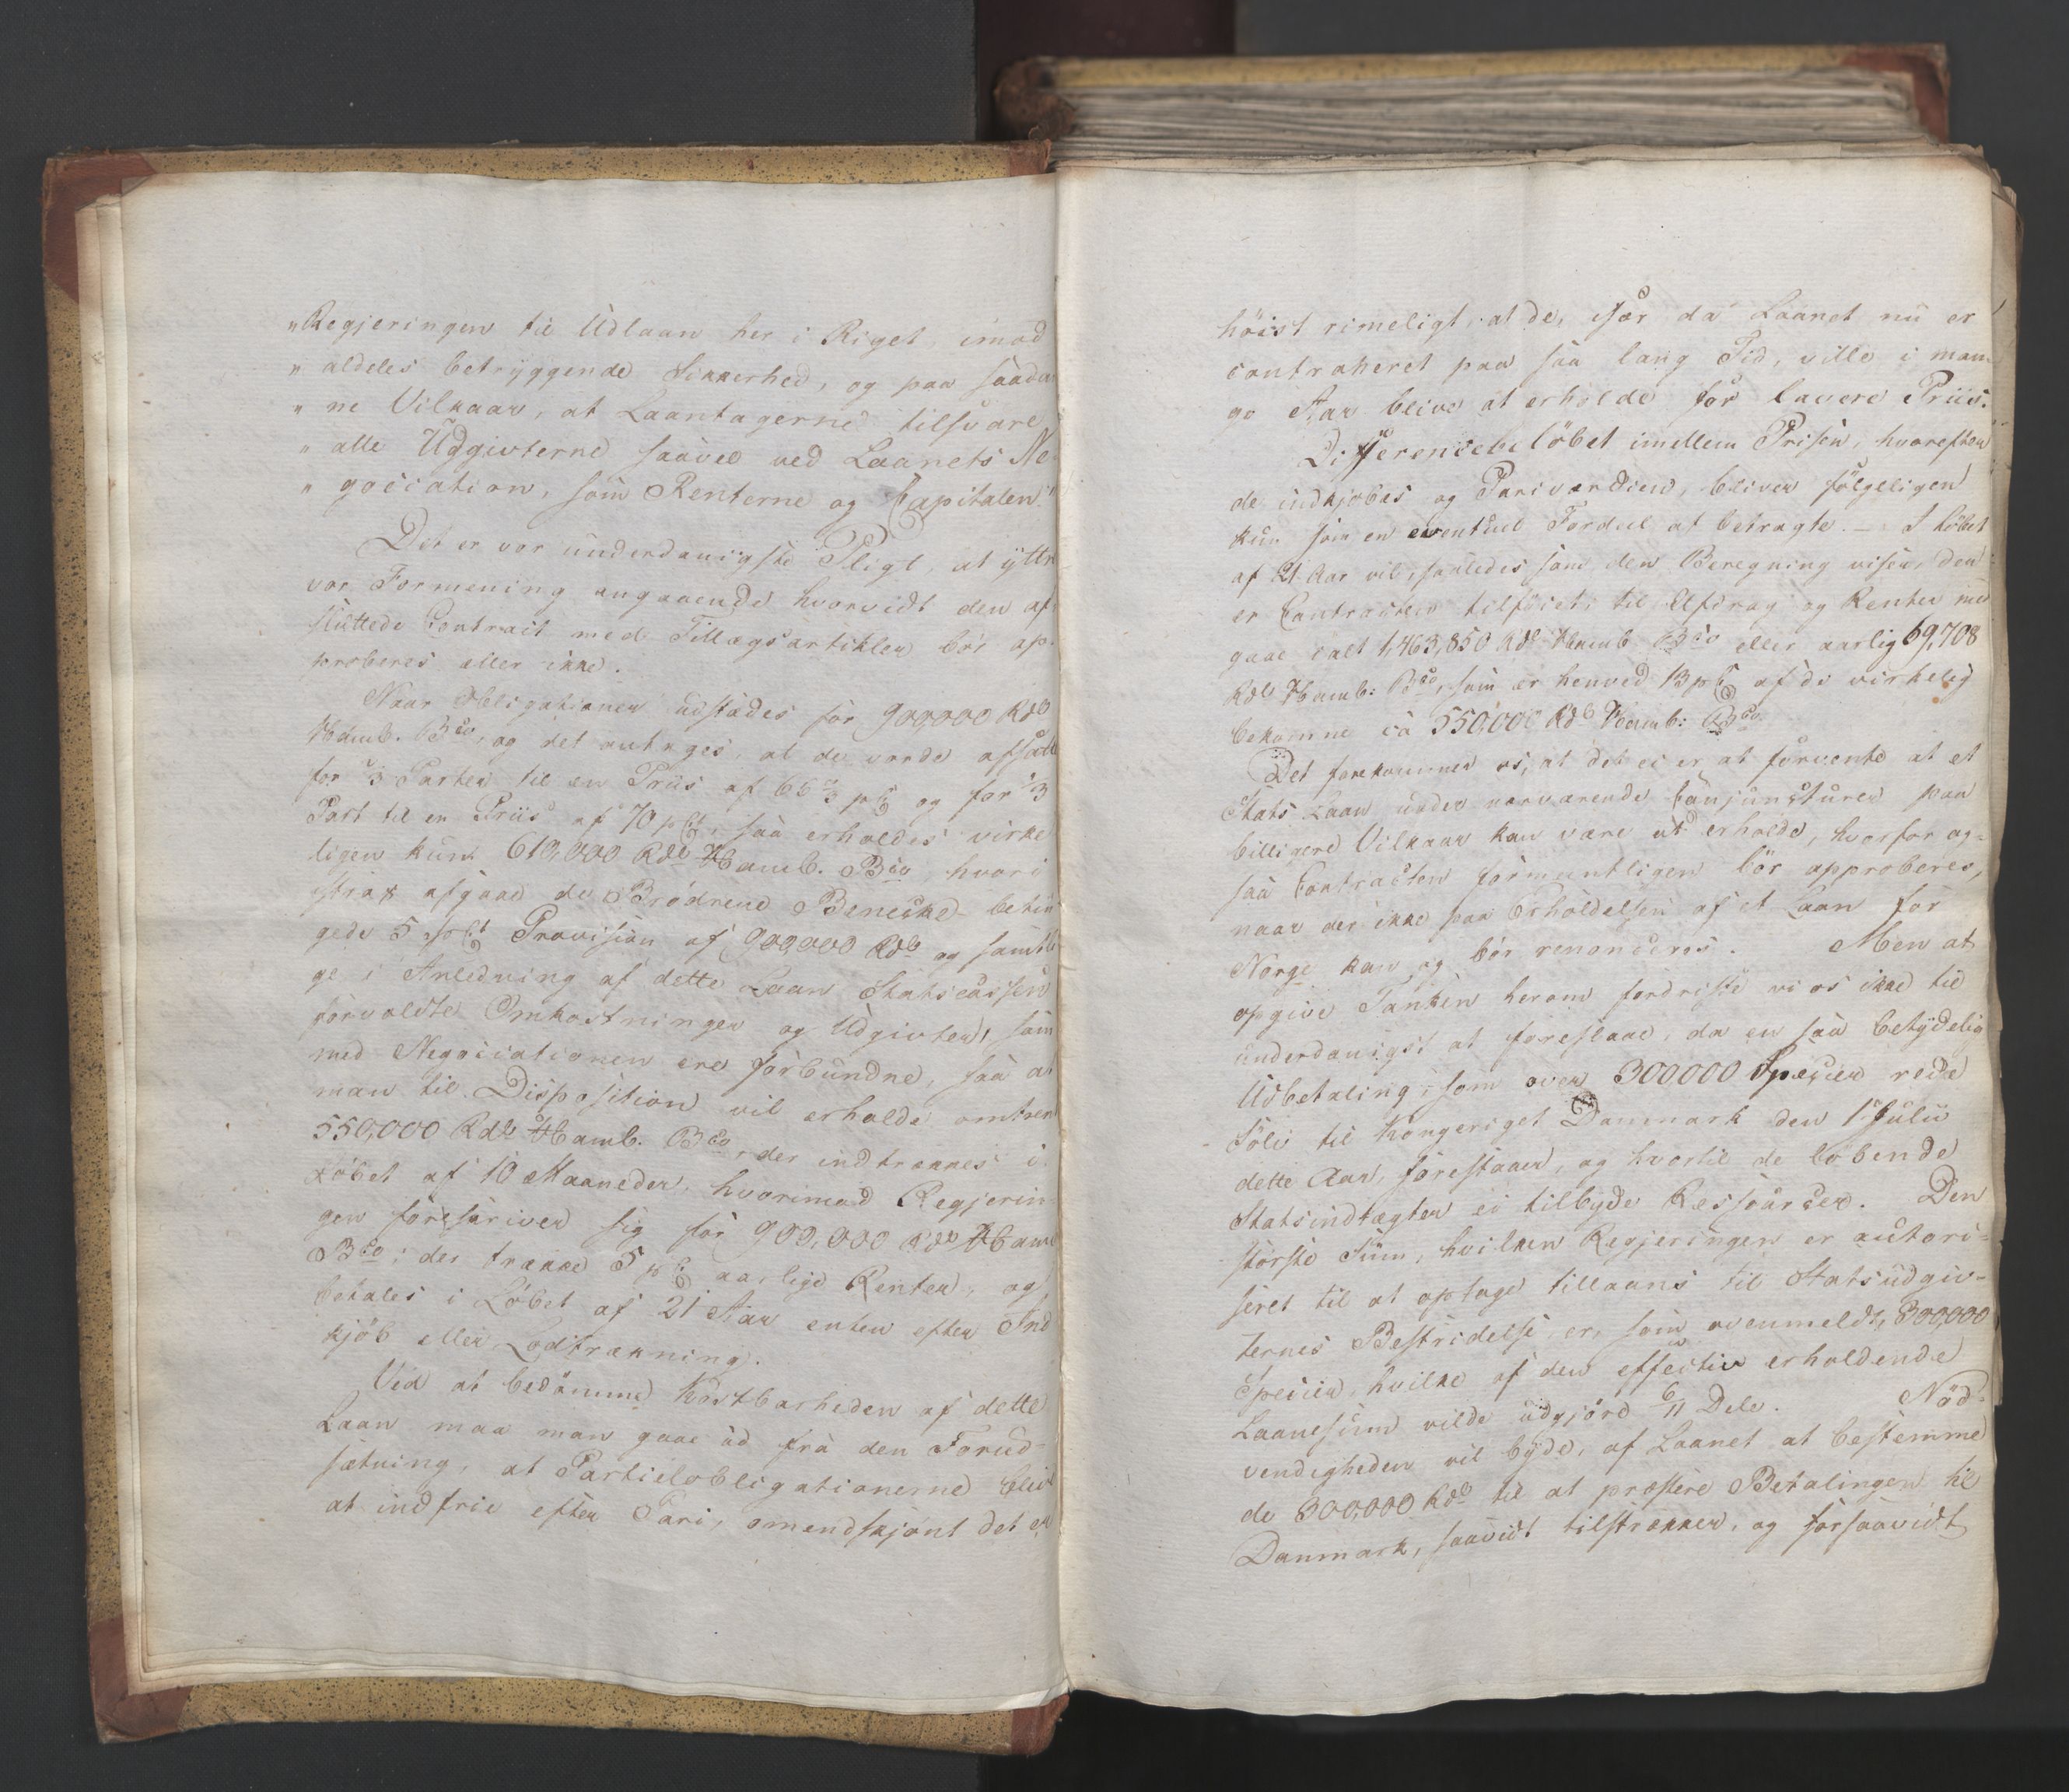 "Regjeringen til Udlaan her i Riget, imod
" aldeles betryggende Sikkerhed, og paa saada-
" ne Vilkaar, at Laantagerne tilsvare
" alle Udgivterne saavel ved Laanets Ne-
" gociation, som Renterne og Capitalen."
Det er vor underdanigste Pligt, at yttre
vor Formening angaaende hvorvidt den af-
sluttede Contract med Tillægsartikler bör ap-
proberes eller ikke.
Naar Obligationer udstædes for 900,000 Rdl
Hamb. Bco, og det antages, at de vorde afsatte
for 2/3 Parter til en Priis af 66 2/3 pCt og for 1/3
Part til en Priis af 70 pCt, saa erholdes virke-
ligen kun 610,000 Rdl Hamb. Bco, hvori
strax afgaae de Brödrene Benecke betin-
gede 5 pCt Provision af 900,000 Rdl og samtli-
ge i Anledning af dette Laan Statscassen
forvoldte Omkostninger og Udgivter, som
med Negociationen ere forbundne, saa at
man til Disposition vil erholde omtrent
550,000 Rdl Hamb. Bco, der indtrækkes i
Löbet af 10 Maaneder, hvorimod Regjerin-
gen forskriver sig for 900,000 Rdl Hamb
Bco; der trække 5 pCt aarlige Renter, og
betales i Löbet af 21 Aar enten efter Ind-
kjöb eller Lodtrækning.
Ved at bedömme Kostbarheden af dette
Laan maa man gaae ud fra den Forud-
sætning, at Partielobligationerne blive
at indfrie efter Pari, omendskjönt det er
höist rimeligt, at de, især da Laanet nu er
contraheret paa saa lang Tid, ville i man-
ge Aar blive at erholde for lavere Priis.
Differencebelöbet imellem Prisen, hvorefter
de indkjöbes og Pariværdien, bliver fölgeligen
kun som en eventuel Fordeel at betragte. – I Löbet
af 21 Aar vil, saaledes som den Beregning viser, der
er Contracten tilföiet, til Afdrag og Renter med-
gaae ialt 1,463,850 Rdl Hamb Bco eller aarlig 69,708
Rdl Hamb: Bco, som er henved 13 pCt af de virkelig
bekomne ca 550,000 Rdl Hamb: Bco.
Det forekommer os, at det ei er at forvente at et
Stats Laan under nærværende Conjuncturer paa
billigere Vilkaar kan være at erholde, hvorfor og-
saa Contracten formeentligen bör approberes,
naar der ikke paa Erholdelsen af et Laan for
Norge kan og bör renonceres. Men at
opgive Tanken herom fordriste vi os ikke til
underdanigst at foreslaae, da en saa betydelig
Udbetaling, som over 300000 Species rede
Sölv til Kongeriget Danmark den 1 Julii
dette Aar, forestaaer, og hvortil de löbende
Statsindtægter ei tilbyde Ressourcer. Den
störste Sum, hvilken Regjeringen er autori-
seret til at optage tillaans til Statsudgiv-
ternes Bestridelse, er, som ovenmeldt, 300,000
Species, hvilke af den effectiv erholdende
Laanesum vilde udgjöre 6/11 Dele. Nöd-
vendigheden vil byde, af Laanet at bestemme
de 300,000 Rdl til at præstere Betalingen til
Danmark, saavidt tilstrækker, og forsaavidt